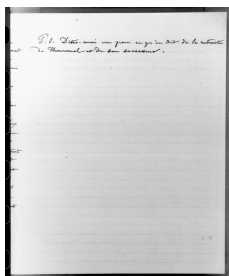 P.S. Dites-moi un peu ce qu'on dit de la retraite
de Thouvenel et de son successeur.